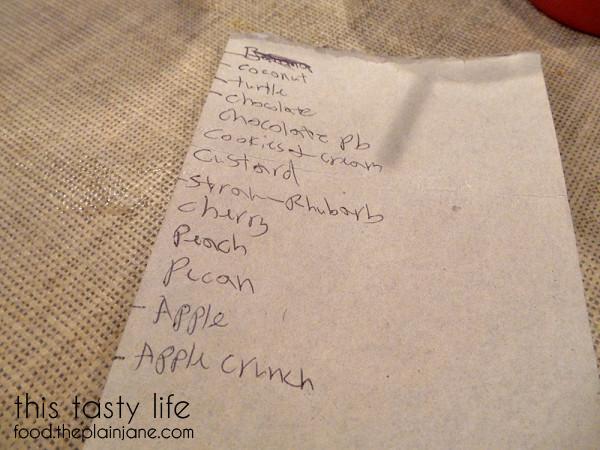 Banana
- coconut
- turtle
- chocolate
Chocolate pb
Cookies + cream
Custard
- Strah-Rhubarb
Cherry
Peach
Pecan
- Apple
- Apple crunch
this tasty life
food.theplainjane.com